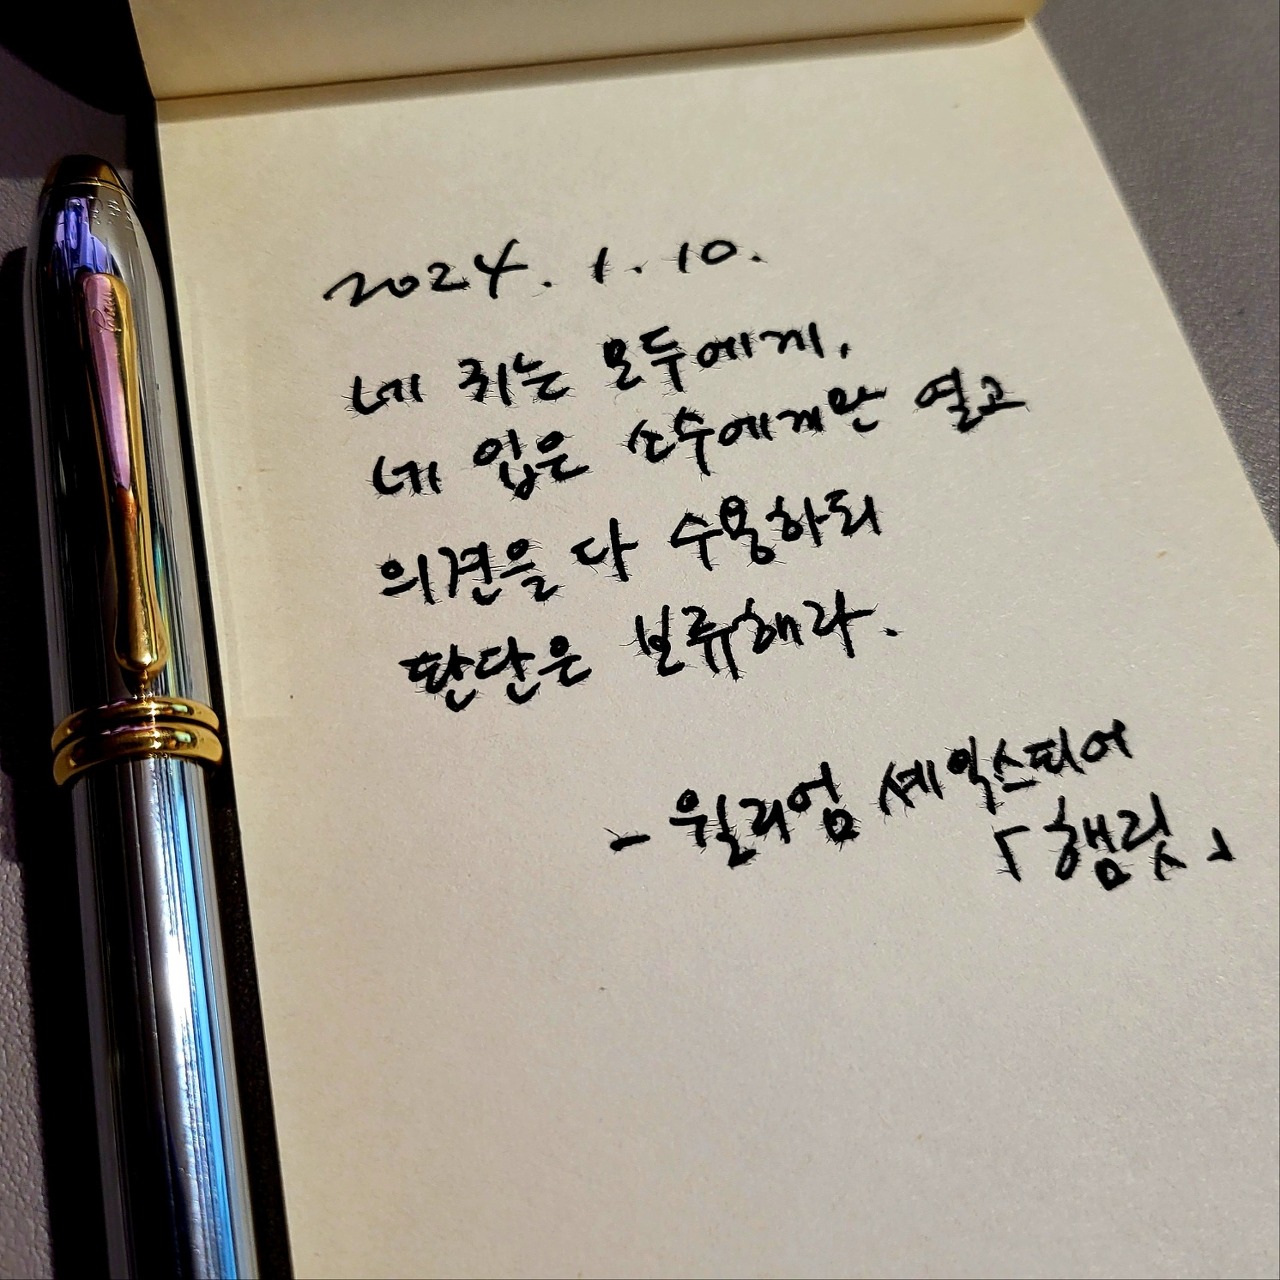 2024. 1. 10.
네 귀는 모두에게,
네 입은 소수에게만 열고
의견을 다 수용하되
판단은 보류해라.
- 윌리엄 셰익스피어
「햄릿」